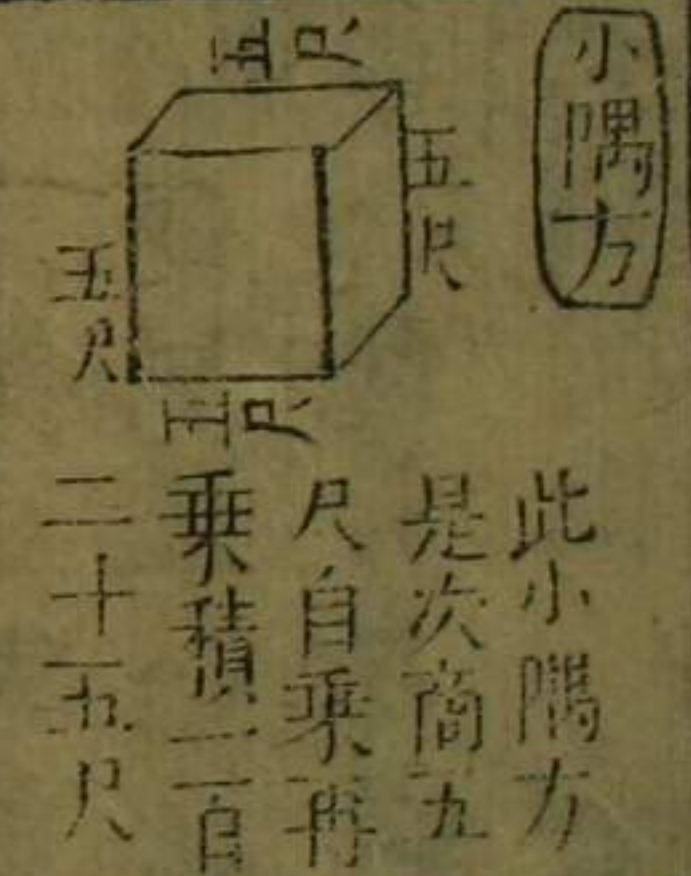 小隅方
五尺
五尺
五尺
五尺
此小隅方
是次商五
尺自乗再
乗積一百
二十五尺